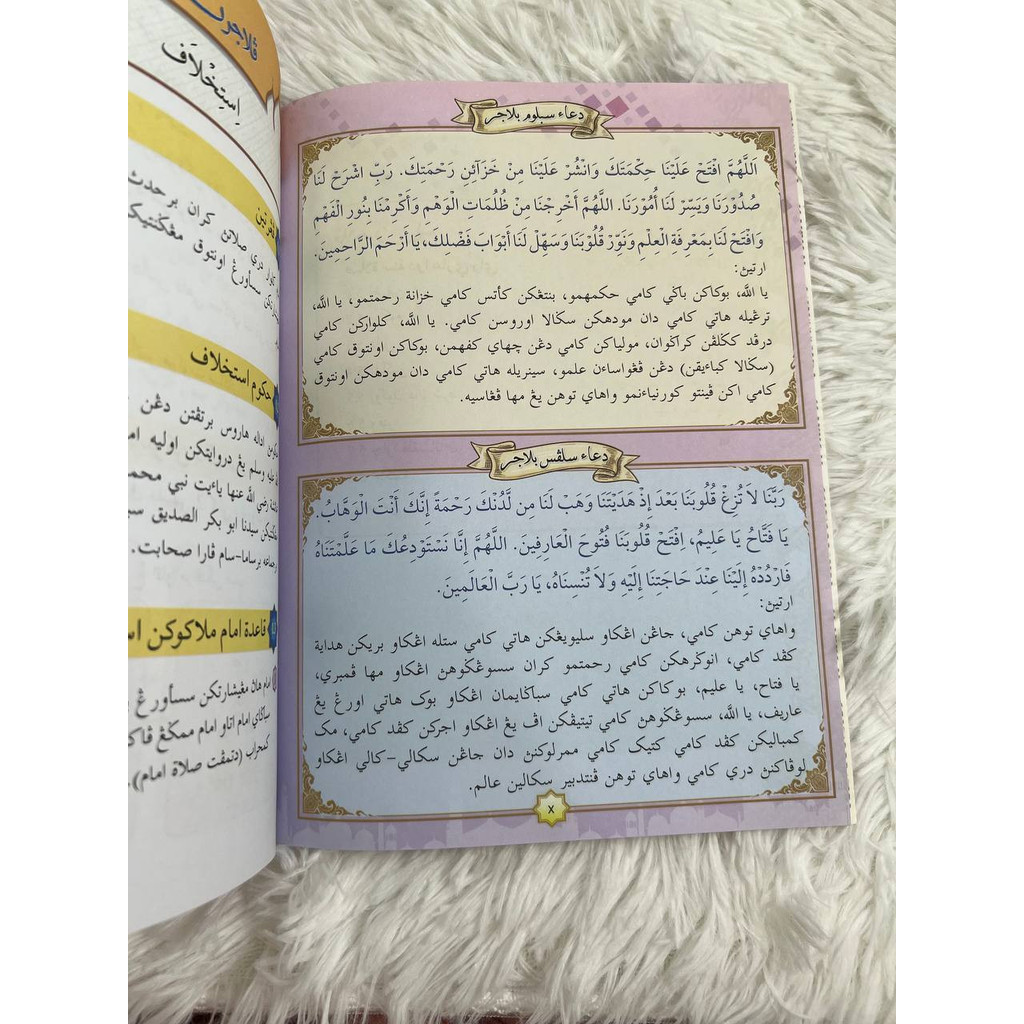 دعاء سبلوم بلاجر
اَللَّهُمَّ افْتَحْ عَلَيْنَا حِكْمَتَكَ وَانْشُرْ عَلَيْنَا مِنْ خَزَآئِنِ رَحْمَتِكَ. رَبِّ اشْرَحْ لَنَا
صُدُوْرَنَا وَيَسِّرْ لَنَا أُمُوْرَنَا. اللَّهُمَّ أَخْرِجْنَا مِنْ ظُلُمَاتِ الْوَهْمِ وَأَكْرِمْنَا بِنُورِ الْفَهْمِ
وَافْتَحْ لَنَا بِمَعْرِفَةِ الْعِلْمِ وَنَوِّرْ قُلُوْبَنَا وَسَهِّلْ لَنَا أَبْوَابَ فَضْلِكَ، يَا أَرْحَمَ الرَّاحِمِينَ.
ارتيڽ:
يا الله، بوكاكن باݢي كامي حكمهمو، بنتڠكن كأتس كامي خزانة رحمتمو، يا الله،
ترڠيله هاتي كامي دان مودهكن سݢالا اوروسن كامي. يا الله، كلواركن كامي
درڤد كݢلڤن كراݢوان، مولياكن كامي دڠن چهاي كفهمن، بوكاكن اونتوق كامي
(سݢالا كباءيقن) دڠن ڤڠواساءن علمو، سينريله هاتي كامي دان مودهكن اونتوق
كامي اكن ڤينتو كورنياءنمو واهاي توهن يڠ مها ڤڠاسيه.
دعاء سلڤس بلاجر
رَبَّنَا لاَ تُزِغْ قُلُوبَنَا بَعْدَ إِذْ هَدَيْتَنَا وَهَبْ لَنَا مِن لَّدُنْكَ رَحْمَةً إِنَّكَ أَنْتَ الْوَهَّابُ.
يَا فَتَّاحُ يَا عَلِيمُ، اِفْتَحْ قُلُوبَنَا فُتُوحَ الْعَارِفِينَ. اللَّهُمَّ إِنَّا نَسْتَوْدِعُكَ مَا عَلَّمْتَنَاهُ
فَارْدُدْهُ إِلَيْنَا عِنْدَ حَاجَتِنَا إِلَيْهِ وَلاَ تُنْسِنَاهُ، يَا رَبَّ الْعَالَمِينَ.
ارتيڽ:
واهاي توهن كامي، جاڠن اڠكاو سليويڠكن هاتي كامي ستله اڠكاو بريكن هداية
كڤد كامي، انوݢرهكن كامي رحمتمو كران سسوڠݢوهن اڠكاو مها ڤمبري،
يا فتاح، يا عليم، بوكاكن هاتي كامي سباݢايمان اڠكاو بوك هاتي اورڠ يڠ
عاريف، يا الله، سسوڠݢوهن كامي تيتيڤكن اڤ يڠ اڠكاو اجركن كڤد كامي، مك
كمباليكن كڤد كامي كتيك كامي ممرلوكنڽ دان جاڠن سكالي-كالي اڠكاو
لوڤاكنڽ دري كامي واهاي توهن ڤنتدبير سكالين عالم.
x
اِسْتِخْلاَف
حكوم استخلاف
قاعدة امام ملاكوكن